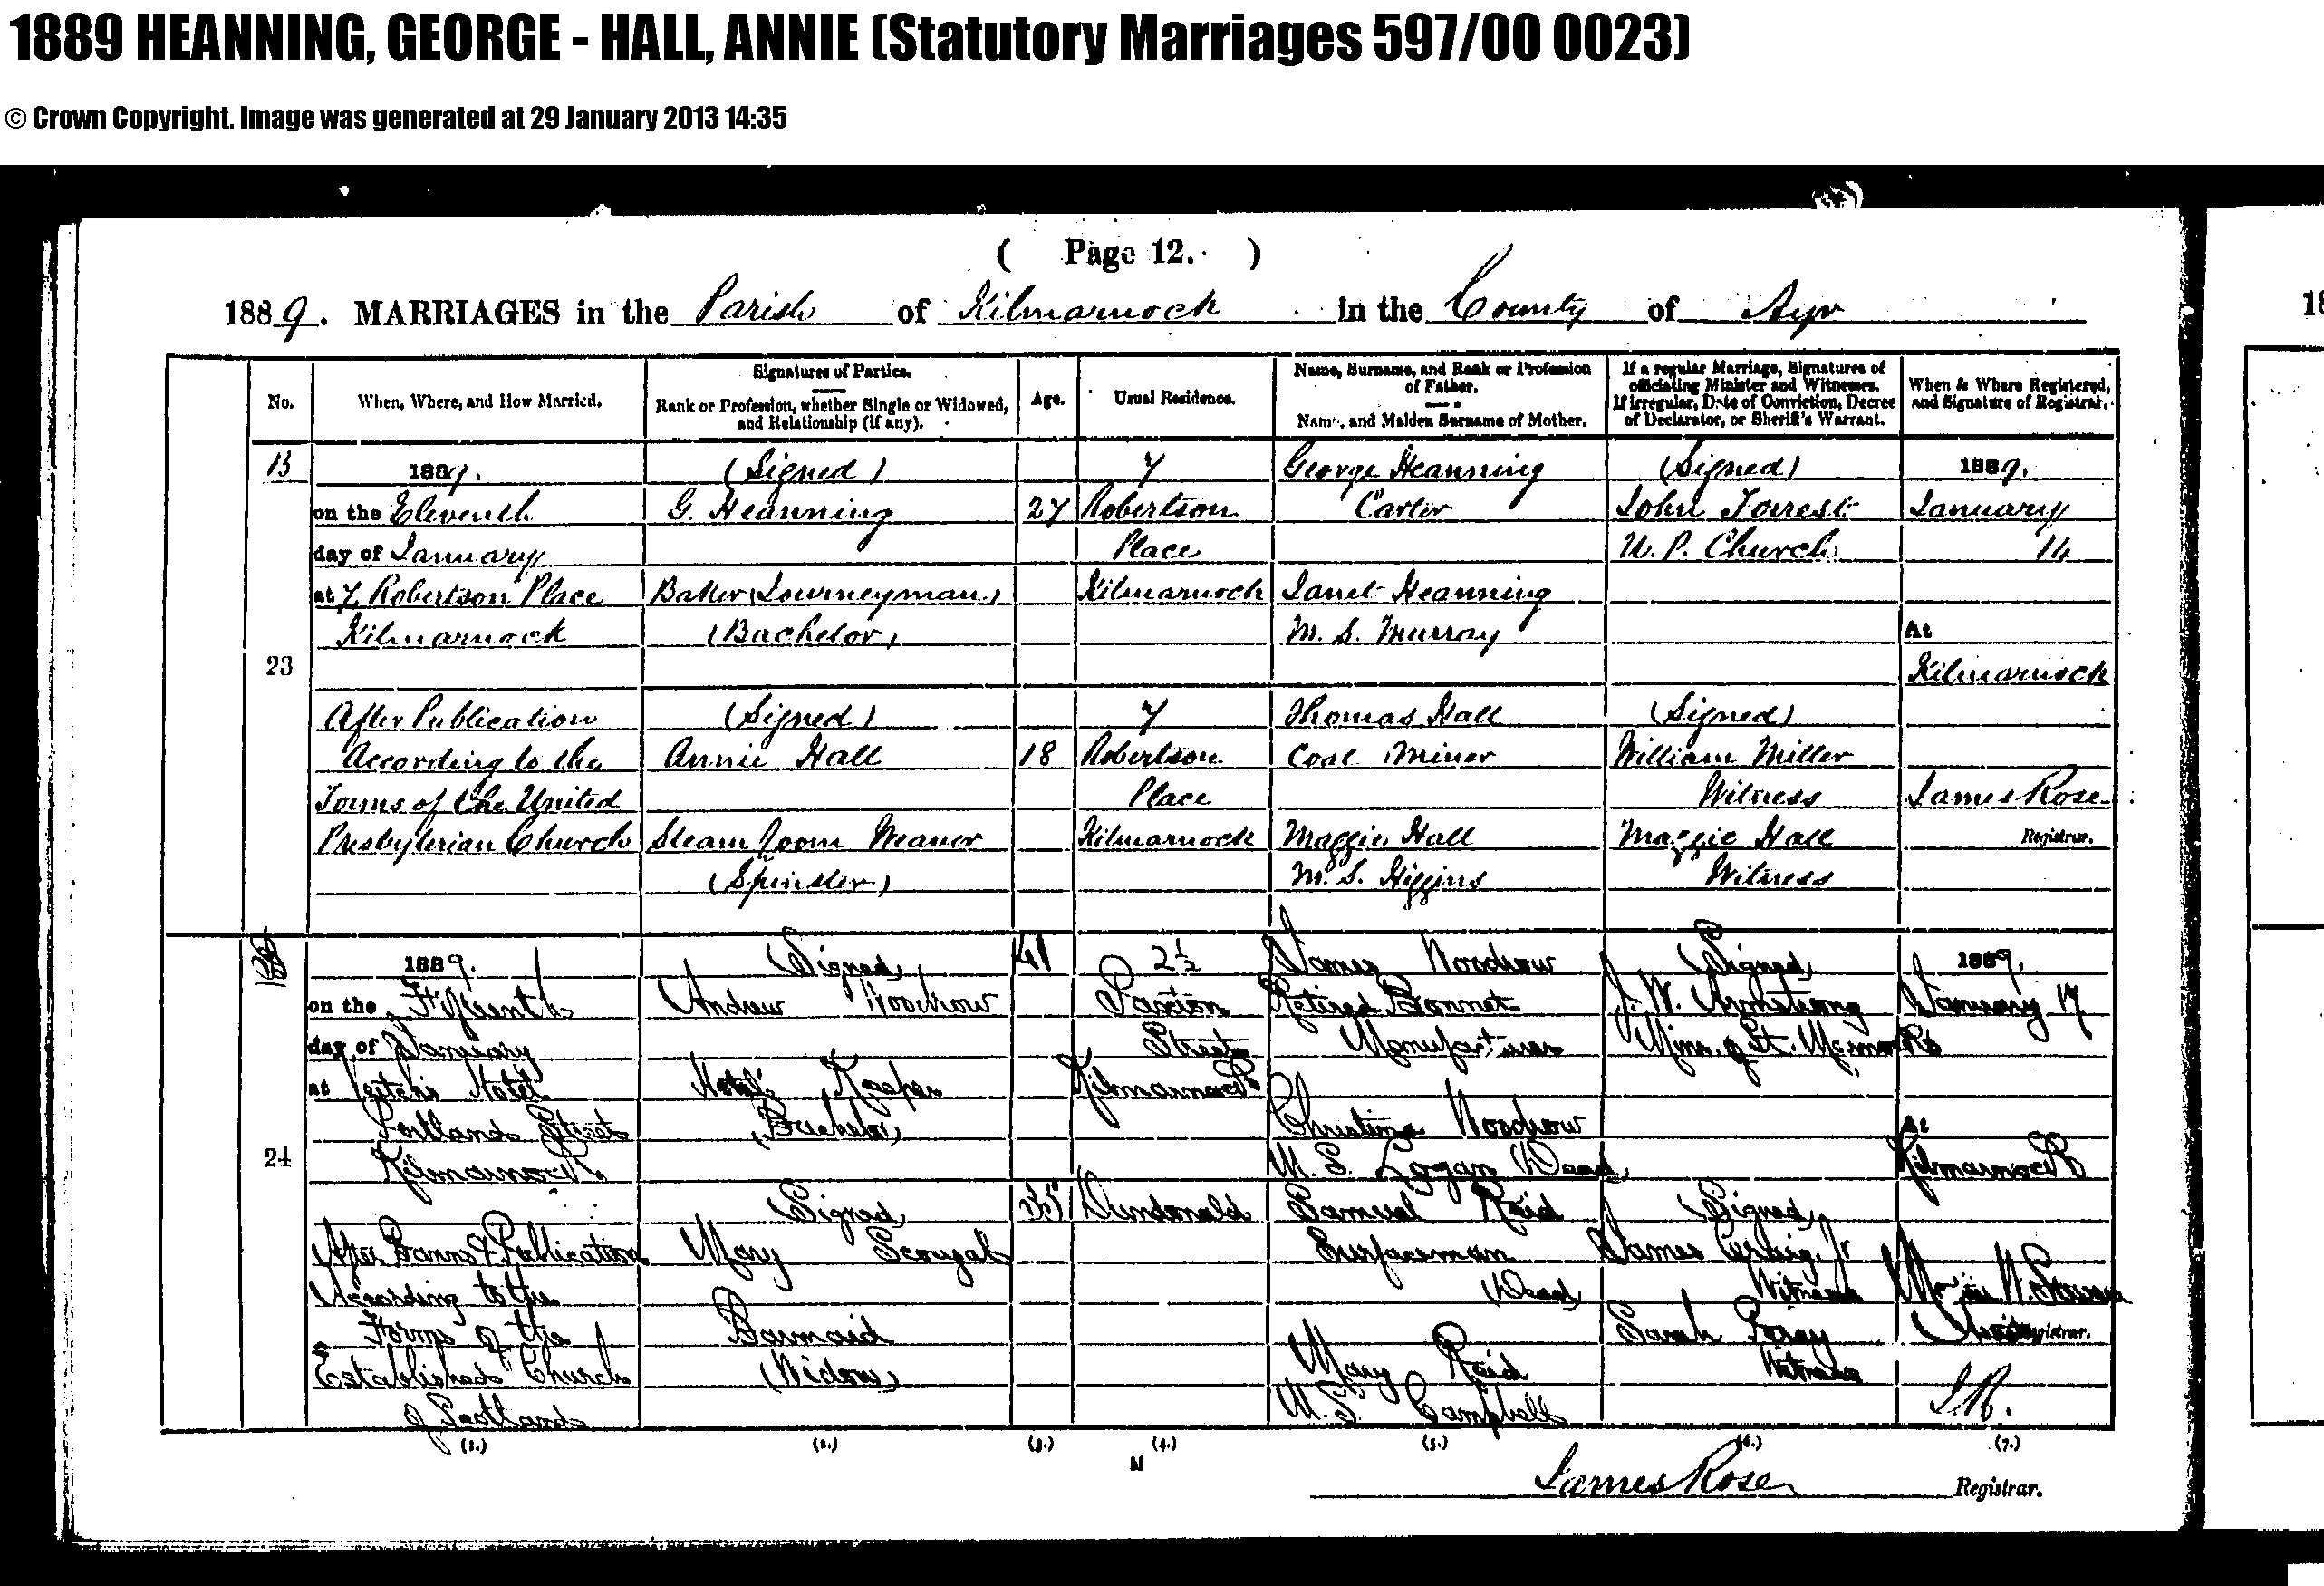 1889 HEANNING, GEORGE - HALL, ANNIE (Statutory Marriages 597/00 0023)
© Crown Copyright. Image was generated at 29 January 2013 14:35
( Page 12. )
1889. MARRIAGES in the Parish of Kilmarnock in the County of Ayr
No.
When, Where, and How Married.
Signatures of Parties.
Rank or Profession, whether Single or Widowed,
and Relationship (if any).
Age.
Usual Residence.
Name, Surname, and Rank or Profession
of Father.
Name, and Maiden Surname of Mother.
If a regular Marriage, Signatures of
officiating Minister and Witnesses.
If irregular, Date of Conviction, Decree
of Declarator, or Sheriff's Warrant.
When & Where Registered,
and Signature of Registrar.
23
1889.
on the Eleventh
day of January
at 7, Robertson Place
Kilmarnock
After Publication
According to the
Forms of the United
Presbyterian Church
(Signed)
G. Heanning
Baker (Journeyman)
(Bachelor)
(Signed)
Annie Hall
Steam Loom Weaver
(Spinster)
27
18
7
Robertson
Place
Kilmarnock
7
Robertson
Place
Kilmarnock
George Heanning
Carter
Janet Heanning
M. S. Murray
Thomas Hall
Coal Miner
Maggie Hall
M. S. Higgins
(Signed)
John Forrest
U. P. Church
(Signed)
William Miller
Witness
Maggie Hall
Witness
1889.
January
14
At
Kilmarnock
James Rose
Registrar.
24
1889.
on the Fifteenth
day of January
at Hotel
Portland Street
Kilmarnock.
After Banns & Publication
According to the
Forms of the
Established Church
of Scotland
Signed
Andrew Woodrow
Hotel Keeper
(Bachelor)
Signed
Mary Scougal
Barmaid
(Widow)
41
35
2½
Paxton
Street
Kilmarnock
Dundonald
James Woodrow
Retired Bonnet
Manufacturer
Christina Woodrow
M. S. Logan (Dead)
Samuel Reid
Surfaceman
(Dead)
Mary Reid
M. S. Campbell
Signed
J. W. Armstrong
Min. of St. Marnocks
Signed
James Craig, Jr
Witness
Sarah
Witness
1889.
January 17
At
Kilmarnock
Registrar.
J.R.
(1.) (2.) (3.) (4.) (5.) (6.) (7.)
N
James Rose Registrar.
18